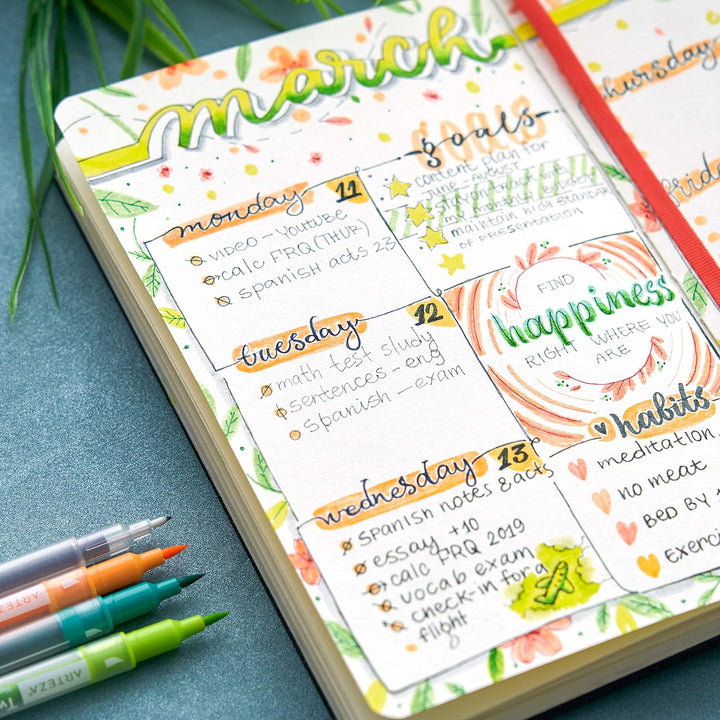 march
monday 11
video - YouTube
calc FRQ (THUR)
spanish acts 23
tuesday 12
math test study
sentences - eng
spanish - exam
wednesday 13
spanish notes & acts
essay +10
calc FRQ 2019
vocab exam
check-in for a
flight
goals
content plan for
june, august
maintain high standard
of presentation
FIND
happiness
RIGHT WHERE YOU
ARE
habits
meditation
no meat
BED BY
Exerci
thursday
friday
ARTEZA
ARTEZA
Tw